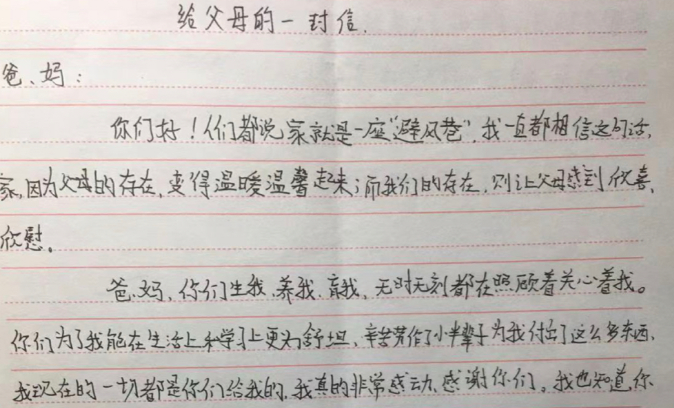 给父母的一封信.
爸、妈：
你们好！人们都说家就是一座“避风巷”，我一直都相信这句话，
家，因为父母的存在，变得温暖温馨起来；而我们的存在，则让父母感到欣喜，
欣慰。
爸、妈，你们生我、养我、育我，无时无刻都在照顾着关心着我。
你们为了我能在生活上和学习上更为舒坦，辛苦劳作了小半辈子为我付出了这么多东西，
我现在的一切都是你们给我的，我真的非常感动、感谢你们。我也知道，你